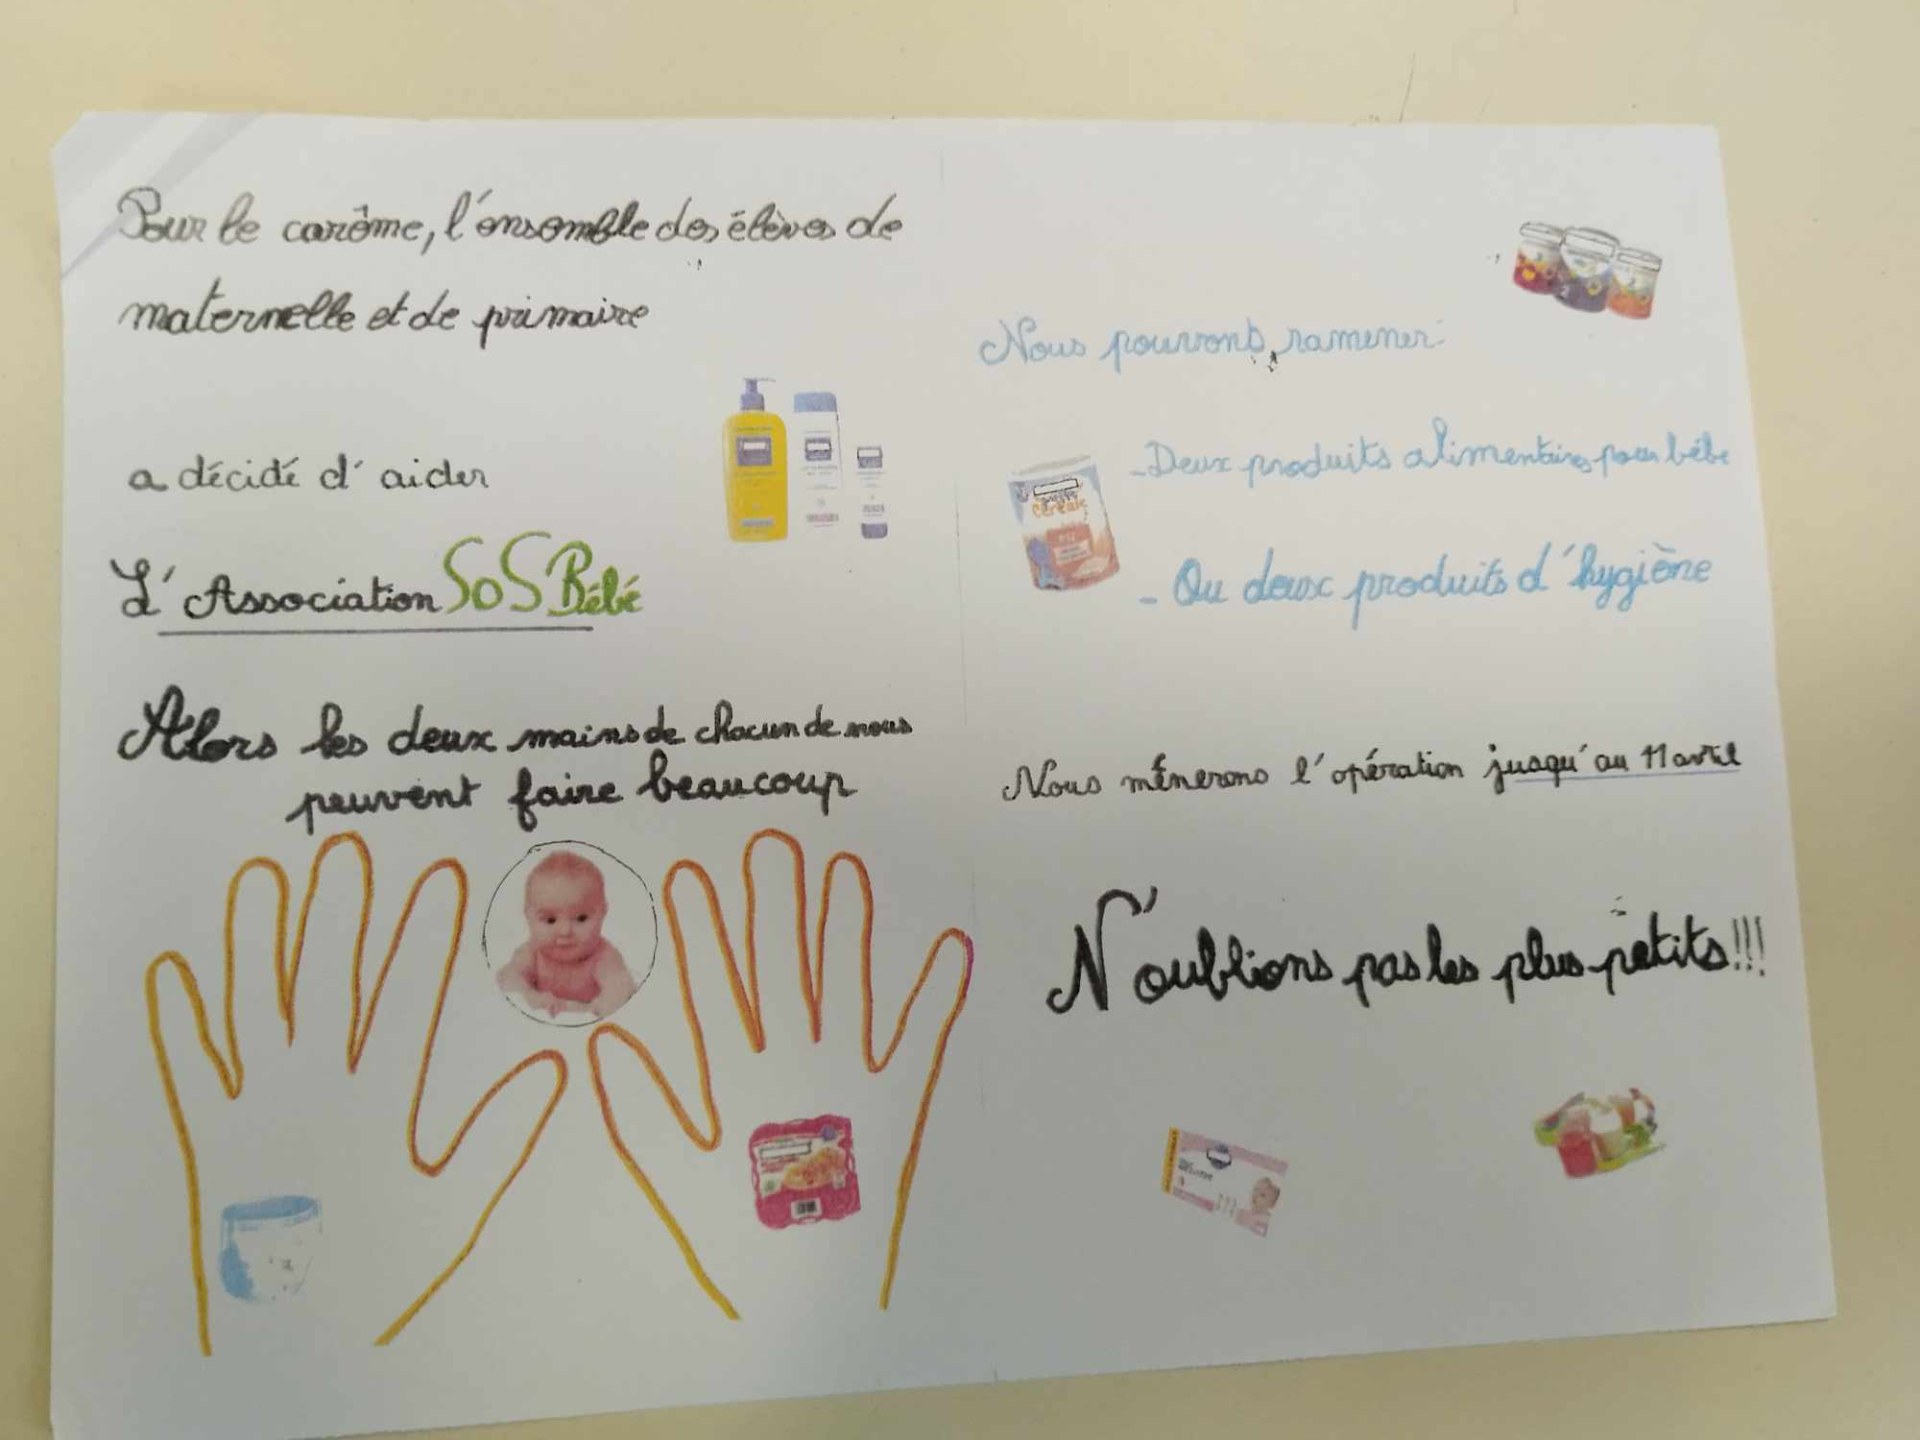 Pour le carême, l'ensemble des élèves de
maternelle et de primaire
a décidé d'aider
L'Association SOS Bébé
Alors les deux mains de chacun de nous
peuvent faire beaucoup
Nous pouvons ramener
- Deux produits alimentaires pour bébé
céréales
- Ou deux produits d'hygiène
Nous mènerons l'opération jusqu'au 11 avril
N'oublions pas les plus petits!!!